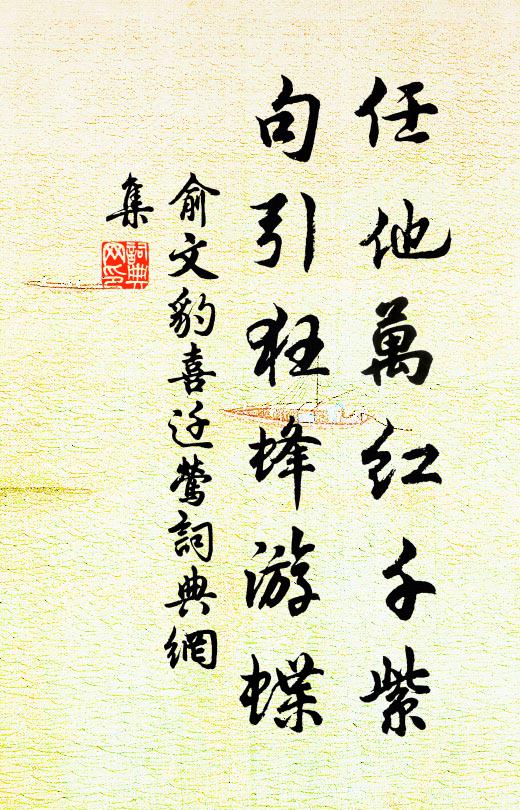 任他萬紅千紫
句引狂蜂游蝶
俞文豹喜迁鶯詞典網
集
詞典
网印